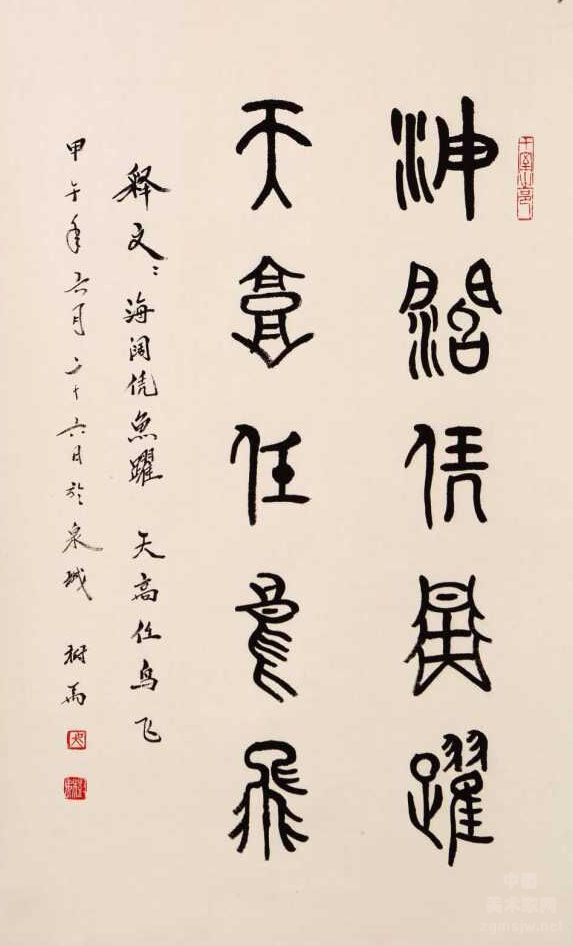 海阔凭鱼跃
天高任鸟飞
释文：海阔凭鱼跃 天高任鸟飞
甲午年六月二十六日於泉城
中国
美术家网
zgmsjw.net